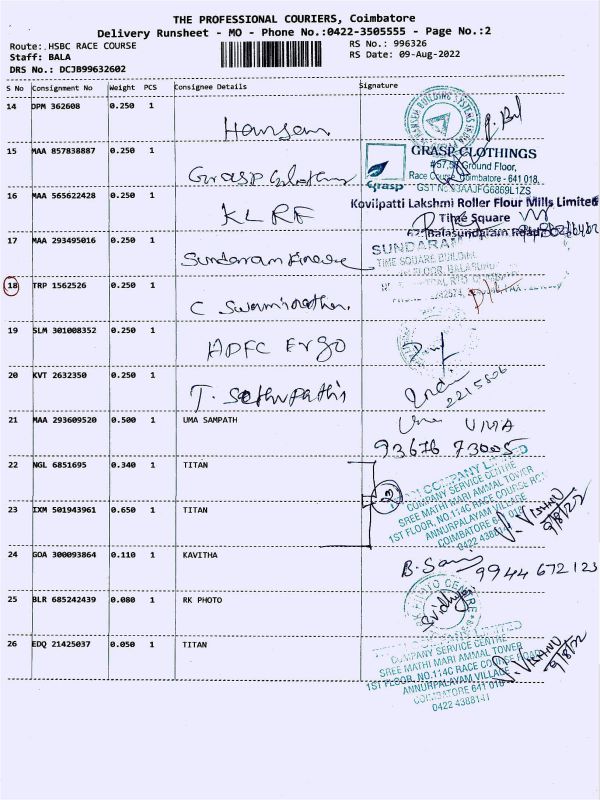 THE PROFESSIONAL COURIERS, Coimbatore
Delivery Runsheet - MO - Phone No.:0422-3505555 - Page No.:2
Route: HSBC RACE COURSE
RS No.: 996326
Staff: BALA
RS Date: 09-Aug-2022
DRS No.: DCJB99632602
S No Consignment No Weight PCS Consignee Details Signature
14 DPM 362608 0.250 1
15 MAA 857838887 0.250 1 Grasp
GRASP CLOTHINGS
#57,58 Ground Floor,
Race Course, Coimbatore - 641 018.
GST No
Grasp
16 MAA 565622428 0.250 1 KLRF
Kovilpatti Lakshmi Roller Flour Mills Limited
Time Square
62, Balasundaram Road,
17 MAA 293495016 0.250 1 Sundaram Finance
SUNDARAM
TIME SQUARE BUILDING
18 TRP 1562526 0.250 1 C Swaminathan
19 SLM 301008352 0.250 1 HDFC Ergo
20 KVT 2632350 0.250 1 T. Sethupathi
2215806
21 MAA 293609520 0.500 1 UMA SAMPATH
UMA
93676 73005
22 NGL 6851695 0.340 1 TITAN
COMPANY LIMITED
COMPANY SERVICE CENTRE
SREE MATHI MARI AMMAL TOWER
1ST FLOOR, NO.114C RACE COURSE ROAD
ANNURPALAYAM VILLAGE
COIMBATORE 641 018
0422 4388141
23 IXM 501943961 0.650 1 TITAN
V. VISHNU
9/8/22
24 GOA 300093864 0.110 1 KAVITHA
9944672123
25 BLR 685242439 0.080 1 RK PHOTO
RK PHOTO CENTRE
Sridhya
26 EDQ 21425037 0.050 1 TITAN
COMPANY SERVICE CENTRE
SREE MATHI MARI AMMAL TOWER
1ST FLOOR, NO.114C RACE COURSE ROAD
ANNURPALAYAM VILLAGE
COIMBATORE 641 018
0422 4388141
V. VISHNU
9/8/22